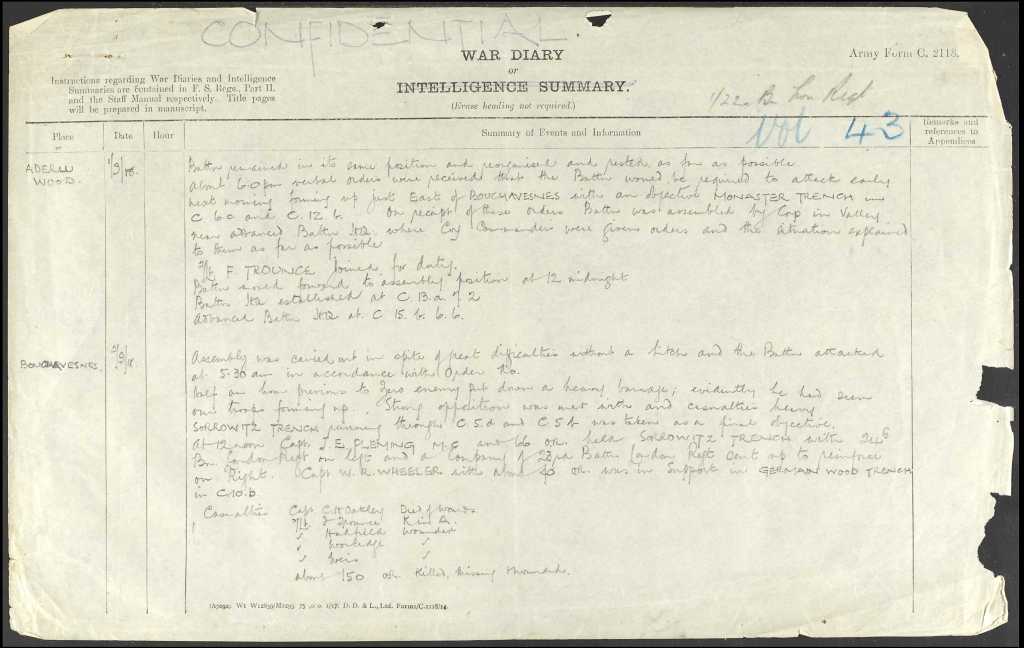 CONFIDENTIAL
WAR DIARY
or
INTELLIGENCE SUMMARY.
(Erase heading not required.)
Army Form C. 2118.
Instructions regarding War Diaries and Intelligence
Summaries are contained in F. S. Regs., Part II.
and the Staff Manual respectively. Title pages
will be prepared in manuscript.
1/22 Bn Lon Regt
Vol 43
Place Date Hour Summary of Events and Information Remarks and
references to
Appendices
ADERLU
WOOD. 1/9/18. Battn remained in its same position and reorganised and rested as far as possible
about 6.0 pm verbal orders were received that the Battn would be required to attack early
next morning forming up just East of BOUCHAVESNES with an objective MONASTER TRENCH in
C. 6.c and C. 12. b. On receipt of these orders Battn was assembled by Coy in Valley
near advanced Battn HQ. where Coy Commanders were given orders and the situation explained
to them as far as possible
2/Lt F. TROUNCE joined for duty.
Battn moved forward to assembly position at 12 midnight
Battn HQ established at C. 13. a.
Advanced Battn HQ. at C 15. b. 6. 6.
BOUCHAVESNES. 2/9/18. Assembly was carried out in spite of great difficulties without a hitch and the Battn attacked
at 5.30 am in accordance with Order No.
half an hour previous to Zero enemy put down a heavy barrage; evidently he had seen
our troops forming up. Strong opposition was met with and casualties heavy
SORROWITZ TRENCH running through C. 5. d and C. 5. b was taken as a final objective.
At 12 noon Capt. L. E. FLEMING M.C. and 66 O.R. held SORROWITZ TRENCH with 24th
Bn. London Regt on left and a Company of 23rd Battn London Regt sent up to reinforce
on Right. Capt. W. R. WHEELER with about 40 O.R. was in Support in GERMAN WOOD TRENCH
in C.10.b.
Casualties Capt C. H. Oakley Died of Wounds
2/Lt F Trounce K in A.
" Hadfield Wounded
" "
" "
about 150 O.R. Killed, Missing & Wounded.